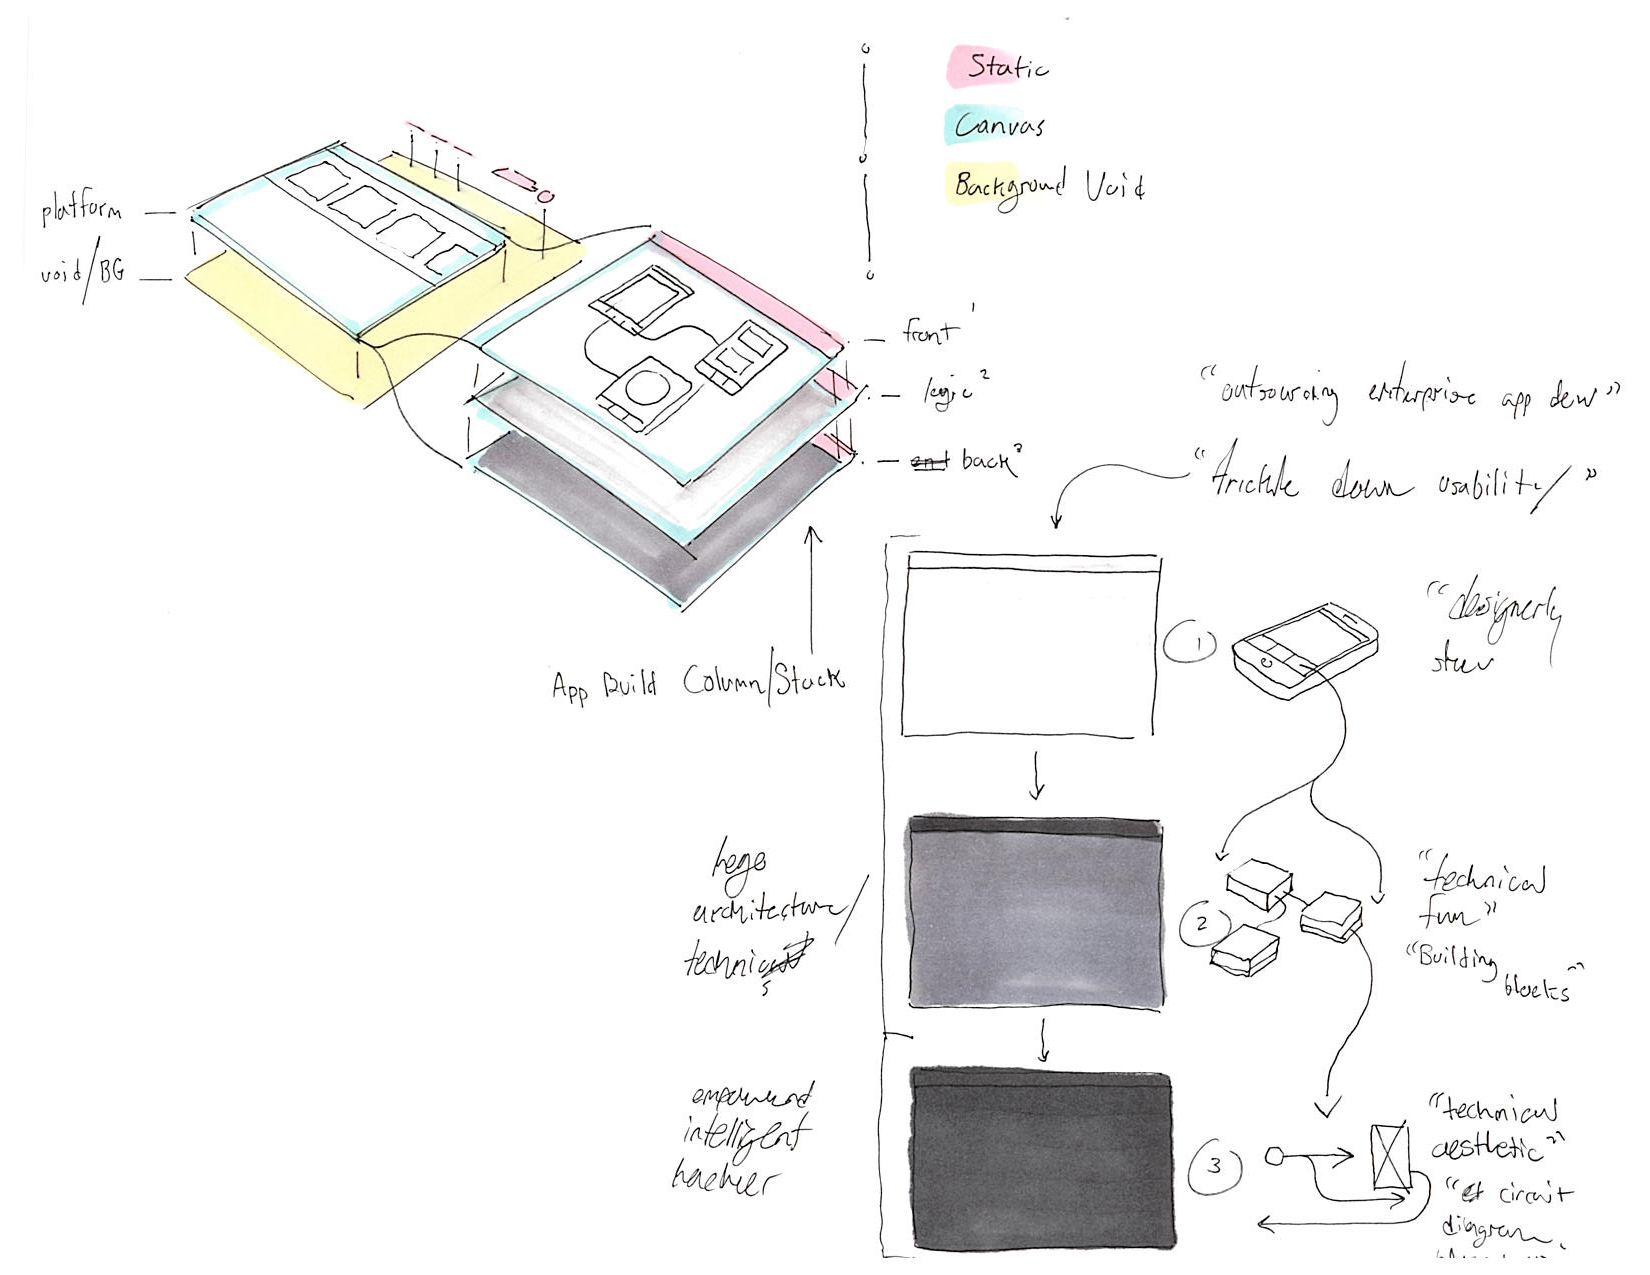 Static
Canvas
Background Void
platform
void/BG
front 1
logic 2
back 3
"outsourcing enterprise app dev"
"trickle down usability/"
App Build Column/Stack
1
"designerly
lego
architecture/
technics
2
"technical
fun"
"Building
blocks"
empowered
intelligent
hacker
3
"technical
aesthetic"
circuit
diagram